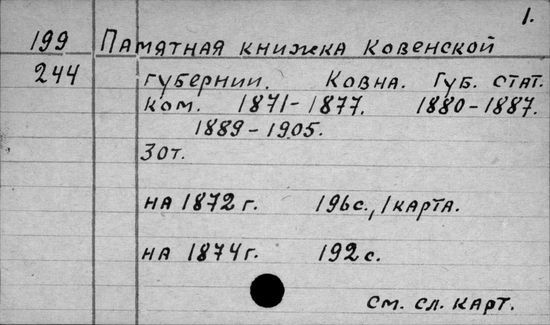 1.
199 Памятная книжка Ковенской
244 губернии. Ковна. Губ. стат.
ком. 1871-1877. 1880-1887.
1889-1905.
30т.
на 1872 г. 196с., 1 карта.
на 1874г. 192 с.
См. сл. карт.